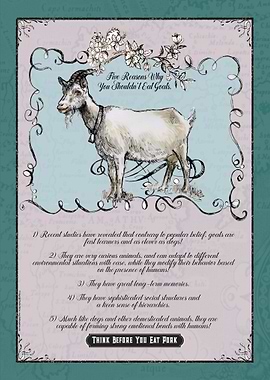 Five Reasons Why
You Shouldn't Eat Goats.
1) Recent studies have revealed that contrary to popular belief, goats are
fast learners and as clever as dogs!
2) They are very curious animals, and can adapt to different
environmental situations with ease, while they modify their behaviors based
on the presence of humans!
3) They have great long-term memories.
4) They have sophisticated social structures and
a keen sense of hierarchies.
5) Much like dogs and other domesticated animals, they are
capable of forming strong emotional bonds with humans!
Think Before You Eat Pork